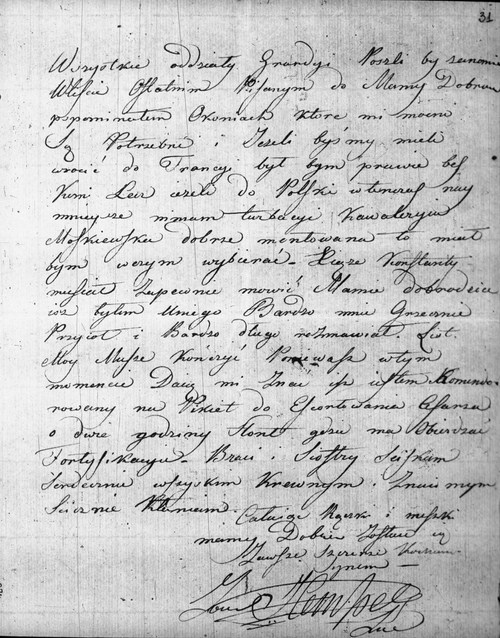 31
Wszystkie oddziały Gwardyi Poszli
Wliście Ostatnim Pisanym do Mamy Dobrau
Wspominałem Okoniach ktore mi mocno
Są Potrzebne i Jezeli byśmy mieli
wrocić do Francyi był bym prawie bez
Kuni Lecz Jezeli do Polski wtenczas nay
mnieysze mmam turbacye Kawalerya
Moskiewska dobrze montowana to miał
bym wczym wybierać – Xiąże Konstanty
musiał Zapewnie mowić Mamie dobrodzice
isz bylim Uniego Bardzo mnie Grzecznie
Przyioł i Bardzo długo rozmawiał. List
Moy Musze Konczyć Poniewasz wtym
momencie Daią mi Znac isz iestem Komende
rowany na Pikiet do Escortowania Cesarza
o dwie godziny stont gdzie ma Obierdzac
Fortyfikacye – Braci i Siostry Sciskam
Serdecznie wszyskim Krewnym i Znaiomym
Slicznie Kłaniam.
Całuiąc Rączki i nuszki
mamy Dobrau Zostaie
Zawsze Szczerze Kochan
Synem –